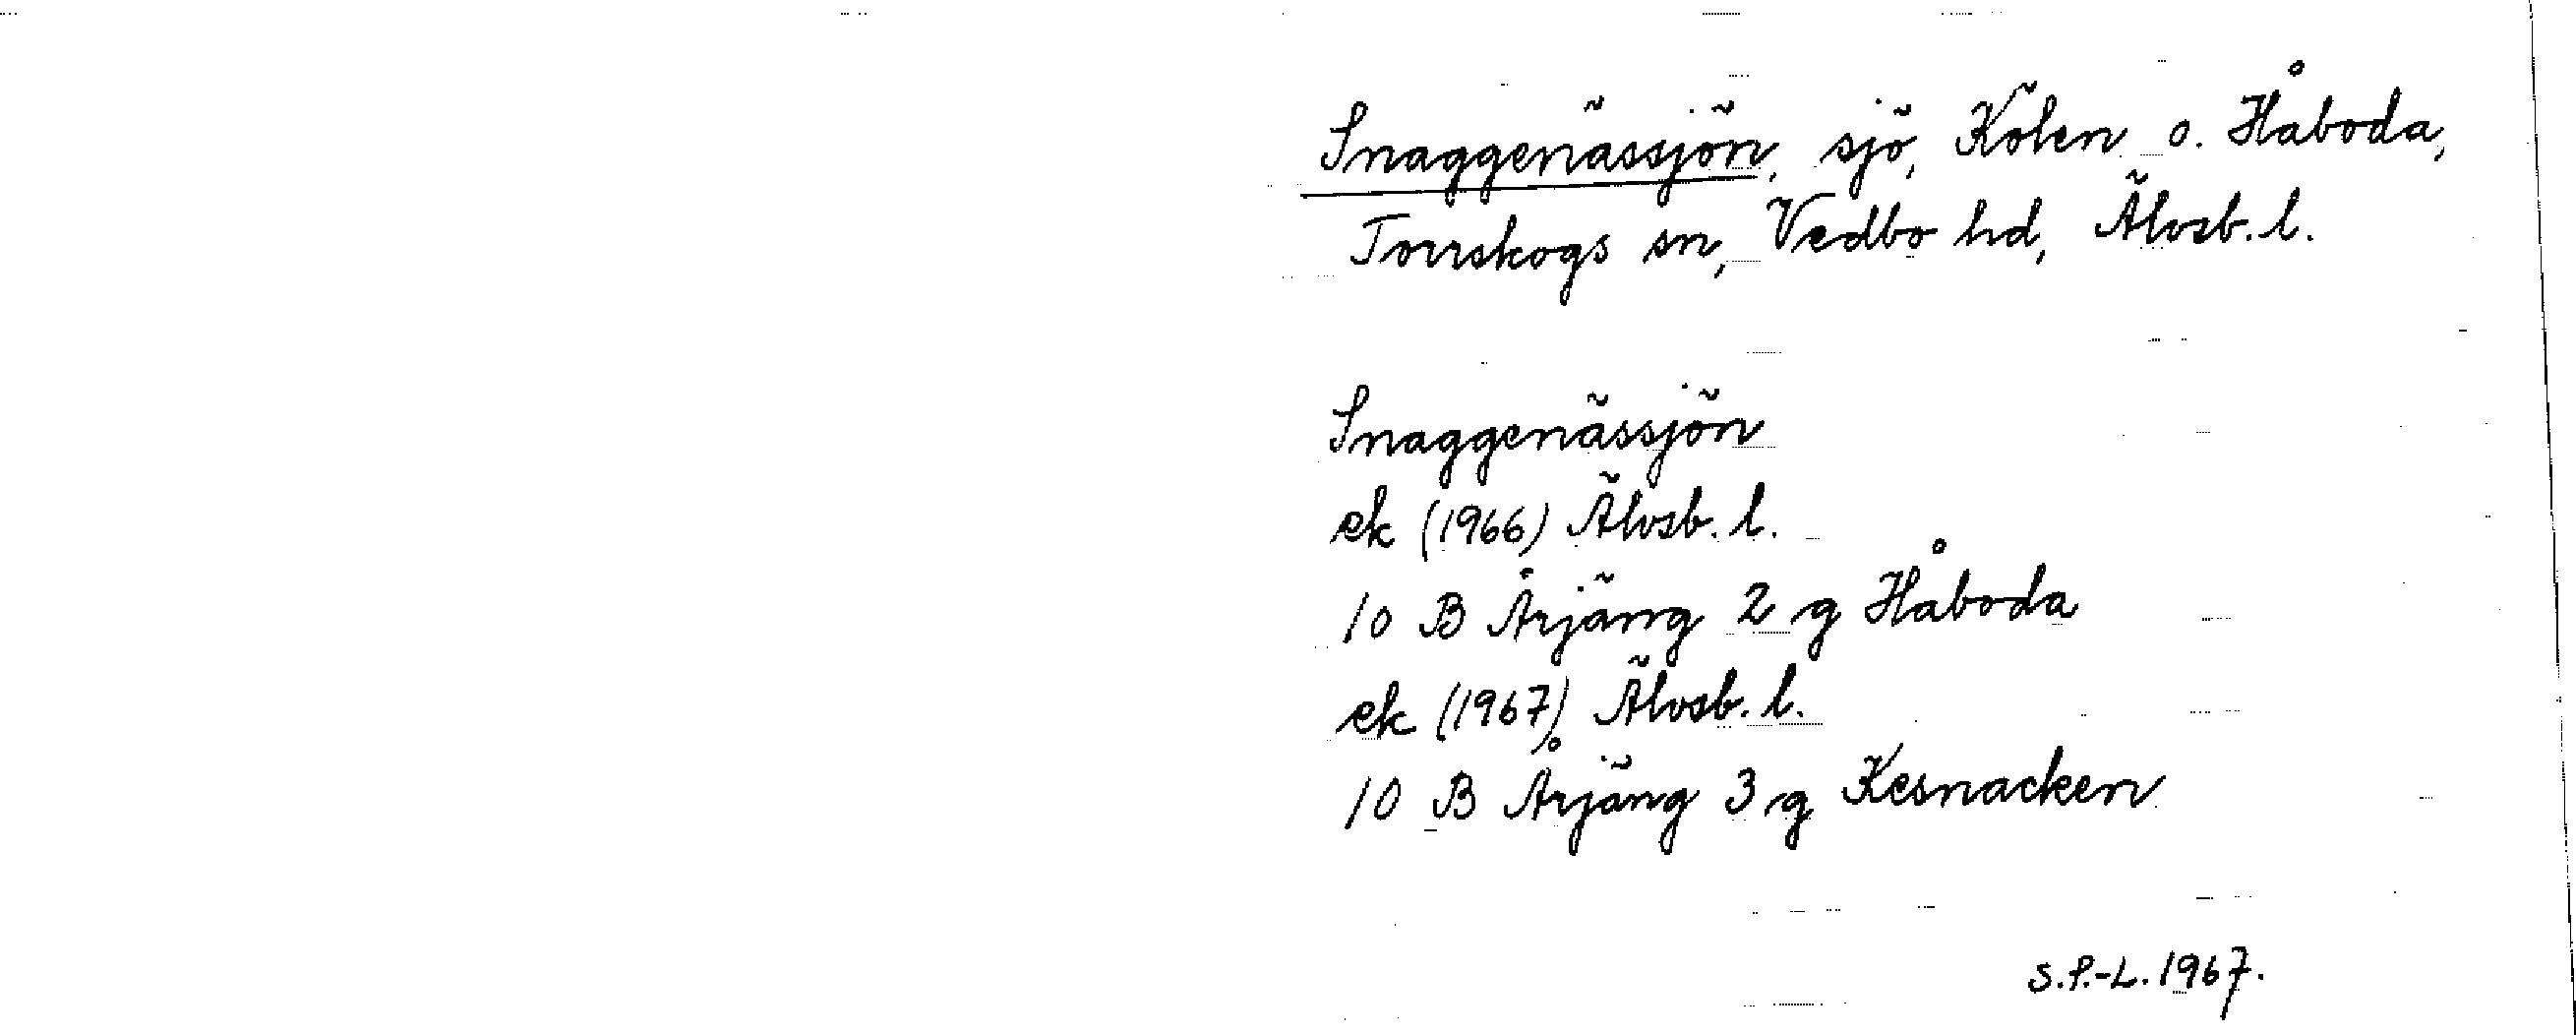 Snaggenässjön, sjö, Kölen o. Håboda,
Torrskogs sn, Vedbo hd, Älvsb. l.
Snaggenässjön
ek (1966) Älvsb. l.
10 B Årjäng 2 g Håboda
ek (1967) Älvsb. l.
10 B Årjäng 3 g Kesnacken
S.P.-L. 1967.